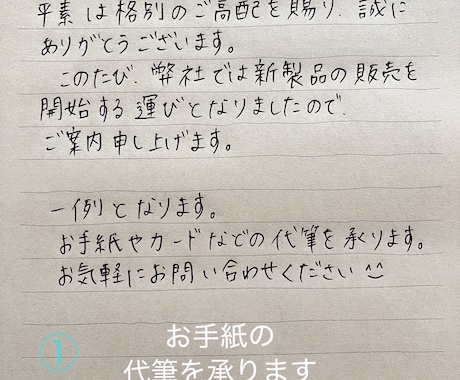 平素は格別のご高配を賜り、誠に
ありがとうございます。
このたび、弊社では新製品の販売を
開始する運びとなりましたので、
ご案内申し上げます。
一例となります。
お手紙やカードなどの代筆を承ります。
お気軽にお問い合わせください^^
①
お手紙の
代筆を承ります